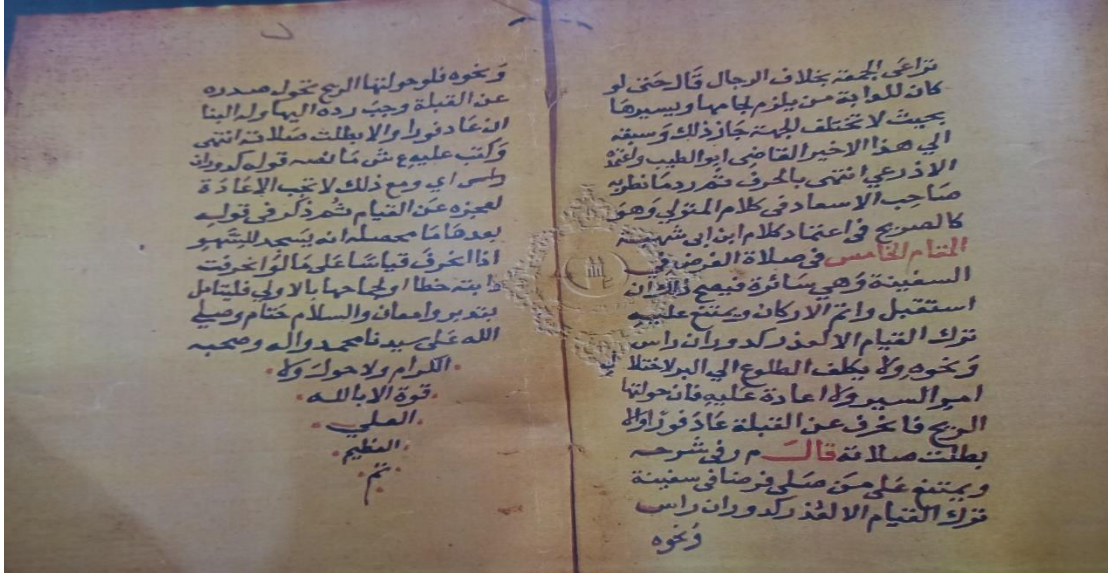 تراعى الجهة بخلاف الرجال قال حتى لو
كان للدابة من يلزم لجامها ويسيرها
بحيث لا تختلف الجهة جاز ذلك وسبقه
الي هذا الاخير القاضى ابو الطيب واعتمده
الاذرعي انتهى بالحرف ثم رد ما نظر به
صاحب الاسعاد فى كلام المتولي وهو
كالصريح فى اعتماد كلام ابن ابى شهبة
المقام الخامس فى صلاة الفرض في
السفينة وهي سائرة فيصح ذلك ان
استقبل واتم الاركان ويمتنع عليه
ترك القيام الا لعذر كدوران راس
ونحوه ولا يكلف الطلوع الي البر لاختلا
امر السير ولا اعادة عليه فان حولتها
الريح فانحرف عن القبلة عاد فورا والا
بطلت صلاته قال م ر فى شرحه
ويمتنع على من صلى فرضا فى سفينة
ترك القيام الا لعذر كدوران راس
ونحوه
ونحوه فلو حولتها الريح تحول صدره
عن القبلة وجب رده اليها وله البنا
ان عاد فورا والا بطلت صلاته انتهى
وكتب عليه ع ش ما نصه قوله كدوران
راس اي ومع ذلك لا تجب الاعادة
لعجزه عن القيام ثم ذكر فى قوليه
بعدها ما محصله انه يسجد للسهو
اذا انحرف قياسا على ما لو انحرفت
دابته خطا او لجماحها بالاولي فليتامل
بتدبر وامعان والسلام ختام وصلي
الله على سيدنا محمد واله وصحبه
الكرام ولا حول ولا
قوة الا بالله
العلي
العظيم
تم